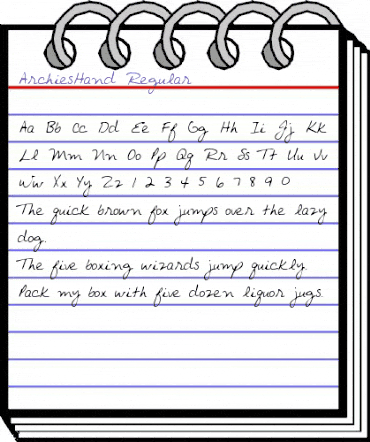 ArchiesHand Regular
Aa Bb Cc Dd Ee Ff Gg Hh Ii Jj Kk
Ll Mm Nn Oo Pp Qq Rr Ss Tt Uu Vv
Ww Xx Yy Zz 1 2 3 4 5 6 7 8 9 0
The quick brown fox jumps over the lazy
dog.
The five boxing wizards jump quickly.
Pack my box with five dozen liquor jugs.